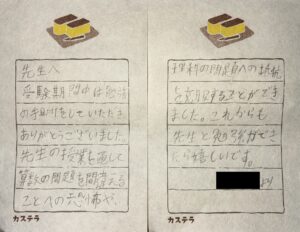 先生へ
受験期間中は勉強
の手助けをしていただき
ありがとうございました。
先生の授業を通して
算数の問題を間違える
ことへの恐怖や、
カステラ
理科の問題への抵抗
を克服することができ
ました。これからも
先生と勉強ができ
たら嬉しいです。
より
カステラ